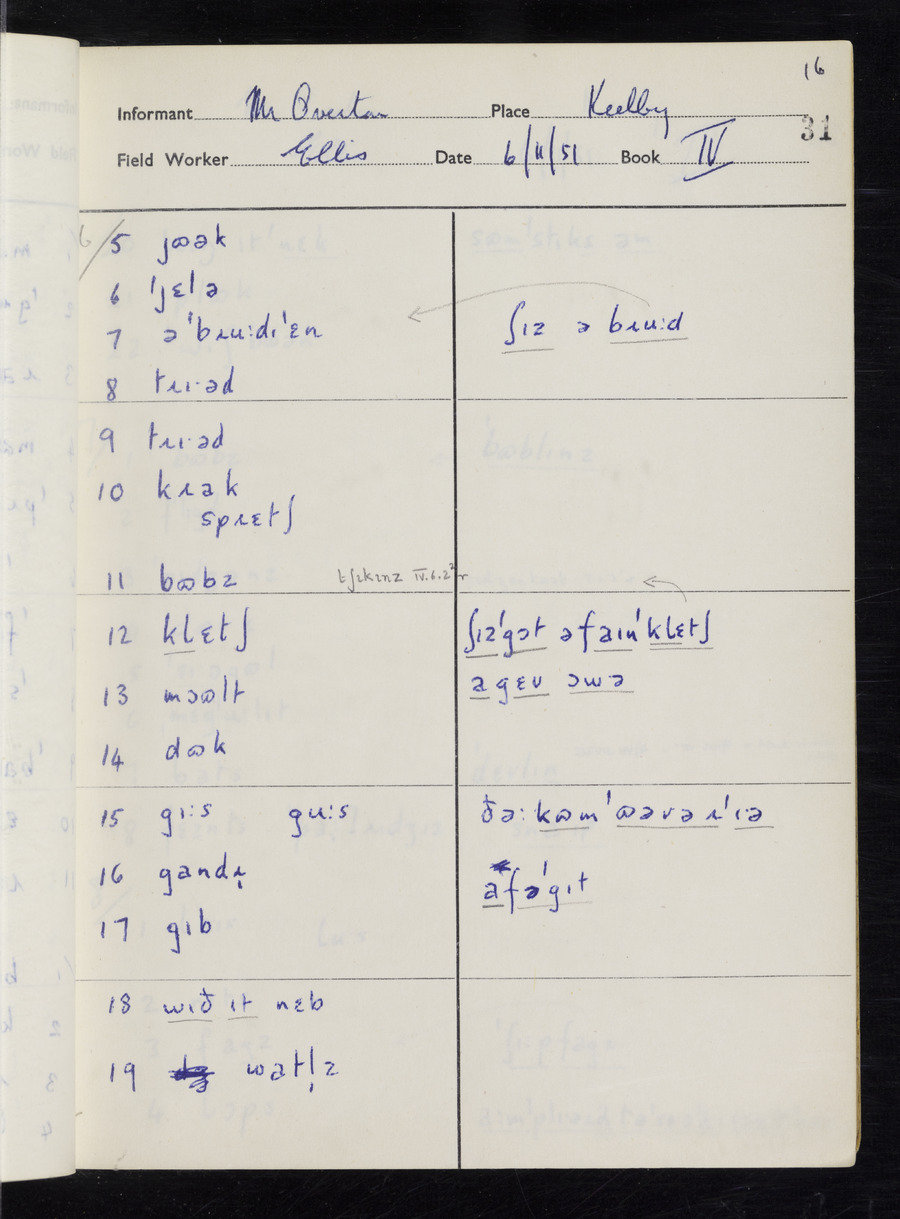 16
Informant Mr Overton Place Keelby
31
Field Worker Ellis Date 6/11/51 Book IV
6/ 5 jɷək
6 ˈjɛlə
7 əˈbɹuːdɪˈɛn ʃɪz ə bɹuːd
8 tɹɪ·əd
9 tɹɪ·əd
10 kɹak
spɹɛtʃ
11 bɷbz tʃɪkɪnz IV.6.2
12 klɛtʃ ʃɪzˈgɔt əfaɪnˈklɛtʃ
13 mɔɷlt a gɛv ɔwə
14 dɷk
15 gɪːs guːs ðəːkɷmˈɷəvəɹˈɪə
16 gandɹ̩ a fəˈgɪt
17 gɪb
18 wɪð ɪt nɛb
19 watl̩z